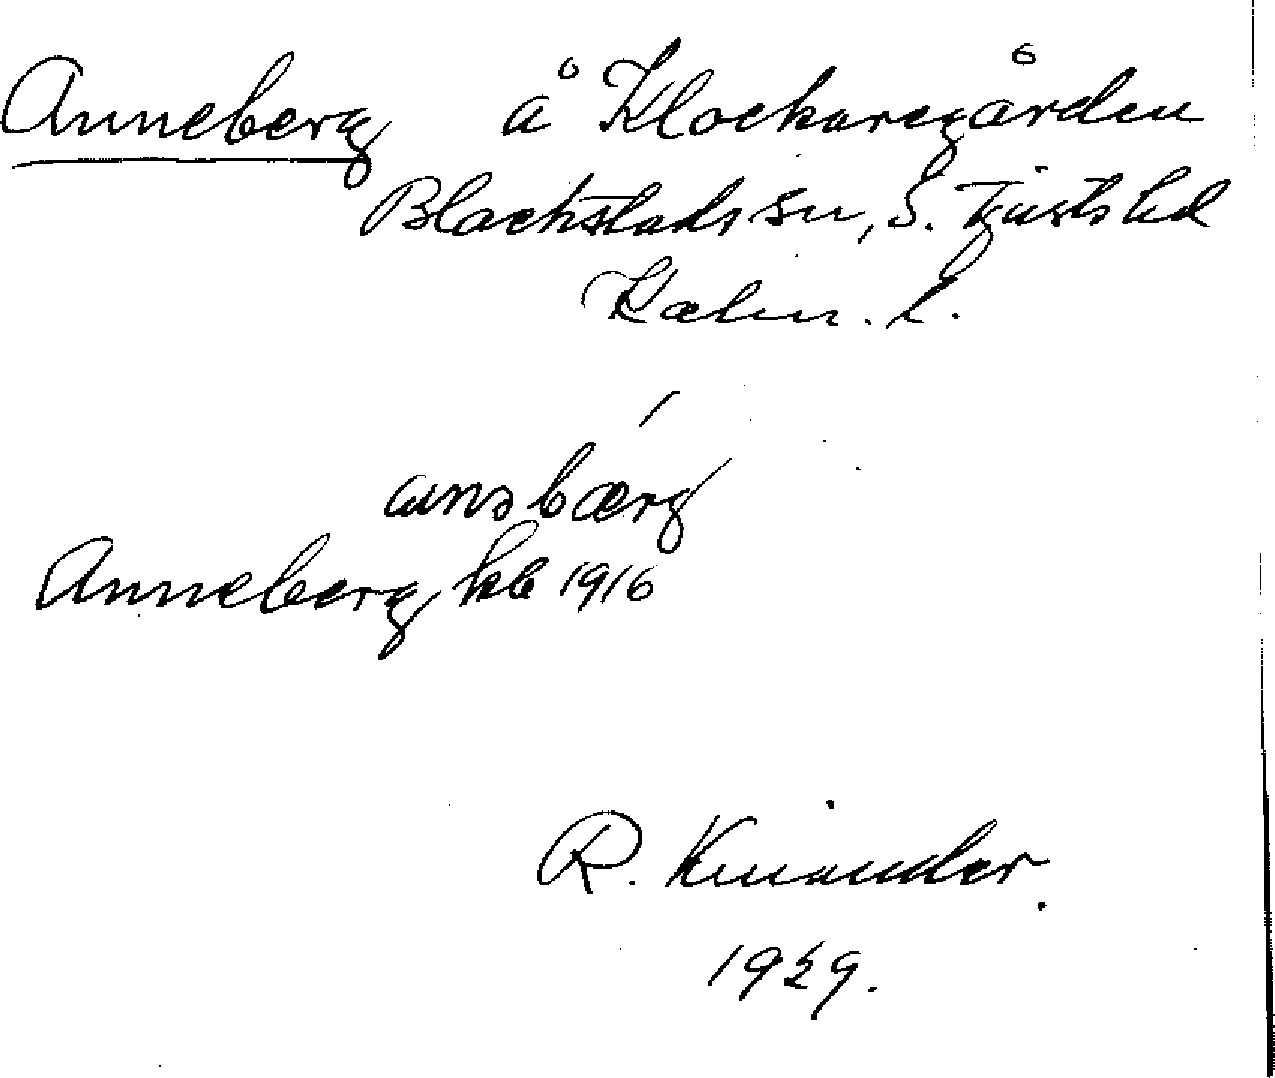 Anneberg å Klockaregården
Blackstads sn, S. Tjusts hd
Kalm. l.
annsbærg
Anneberg kb 1916
R. Kinander.
1929.